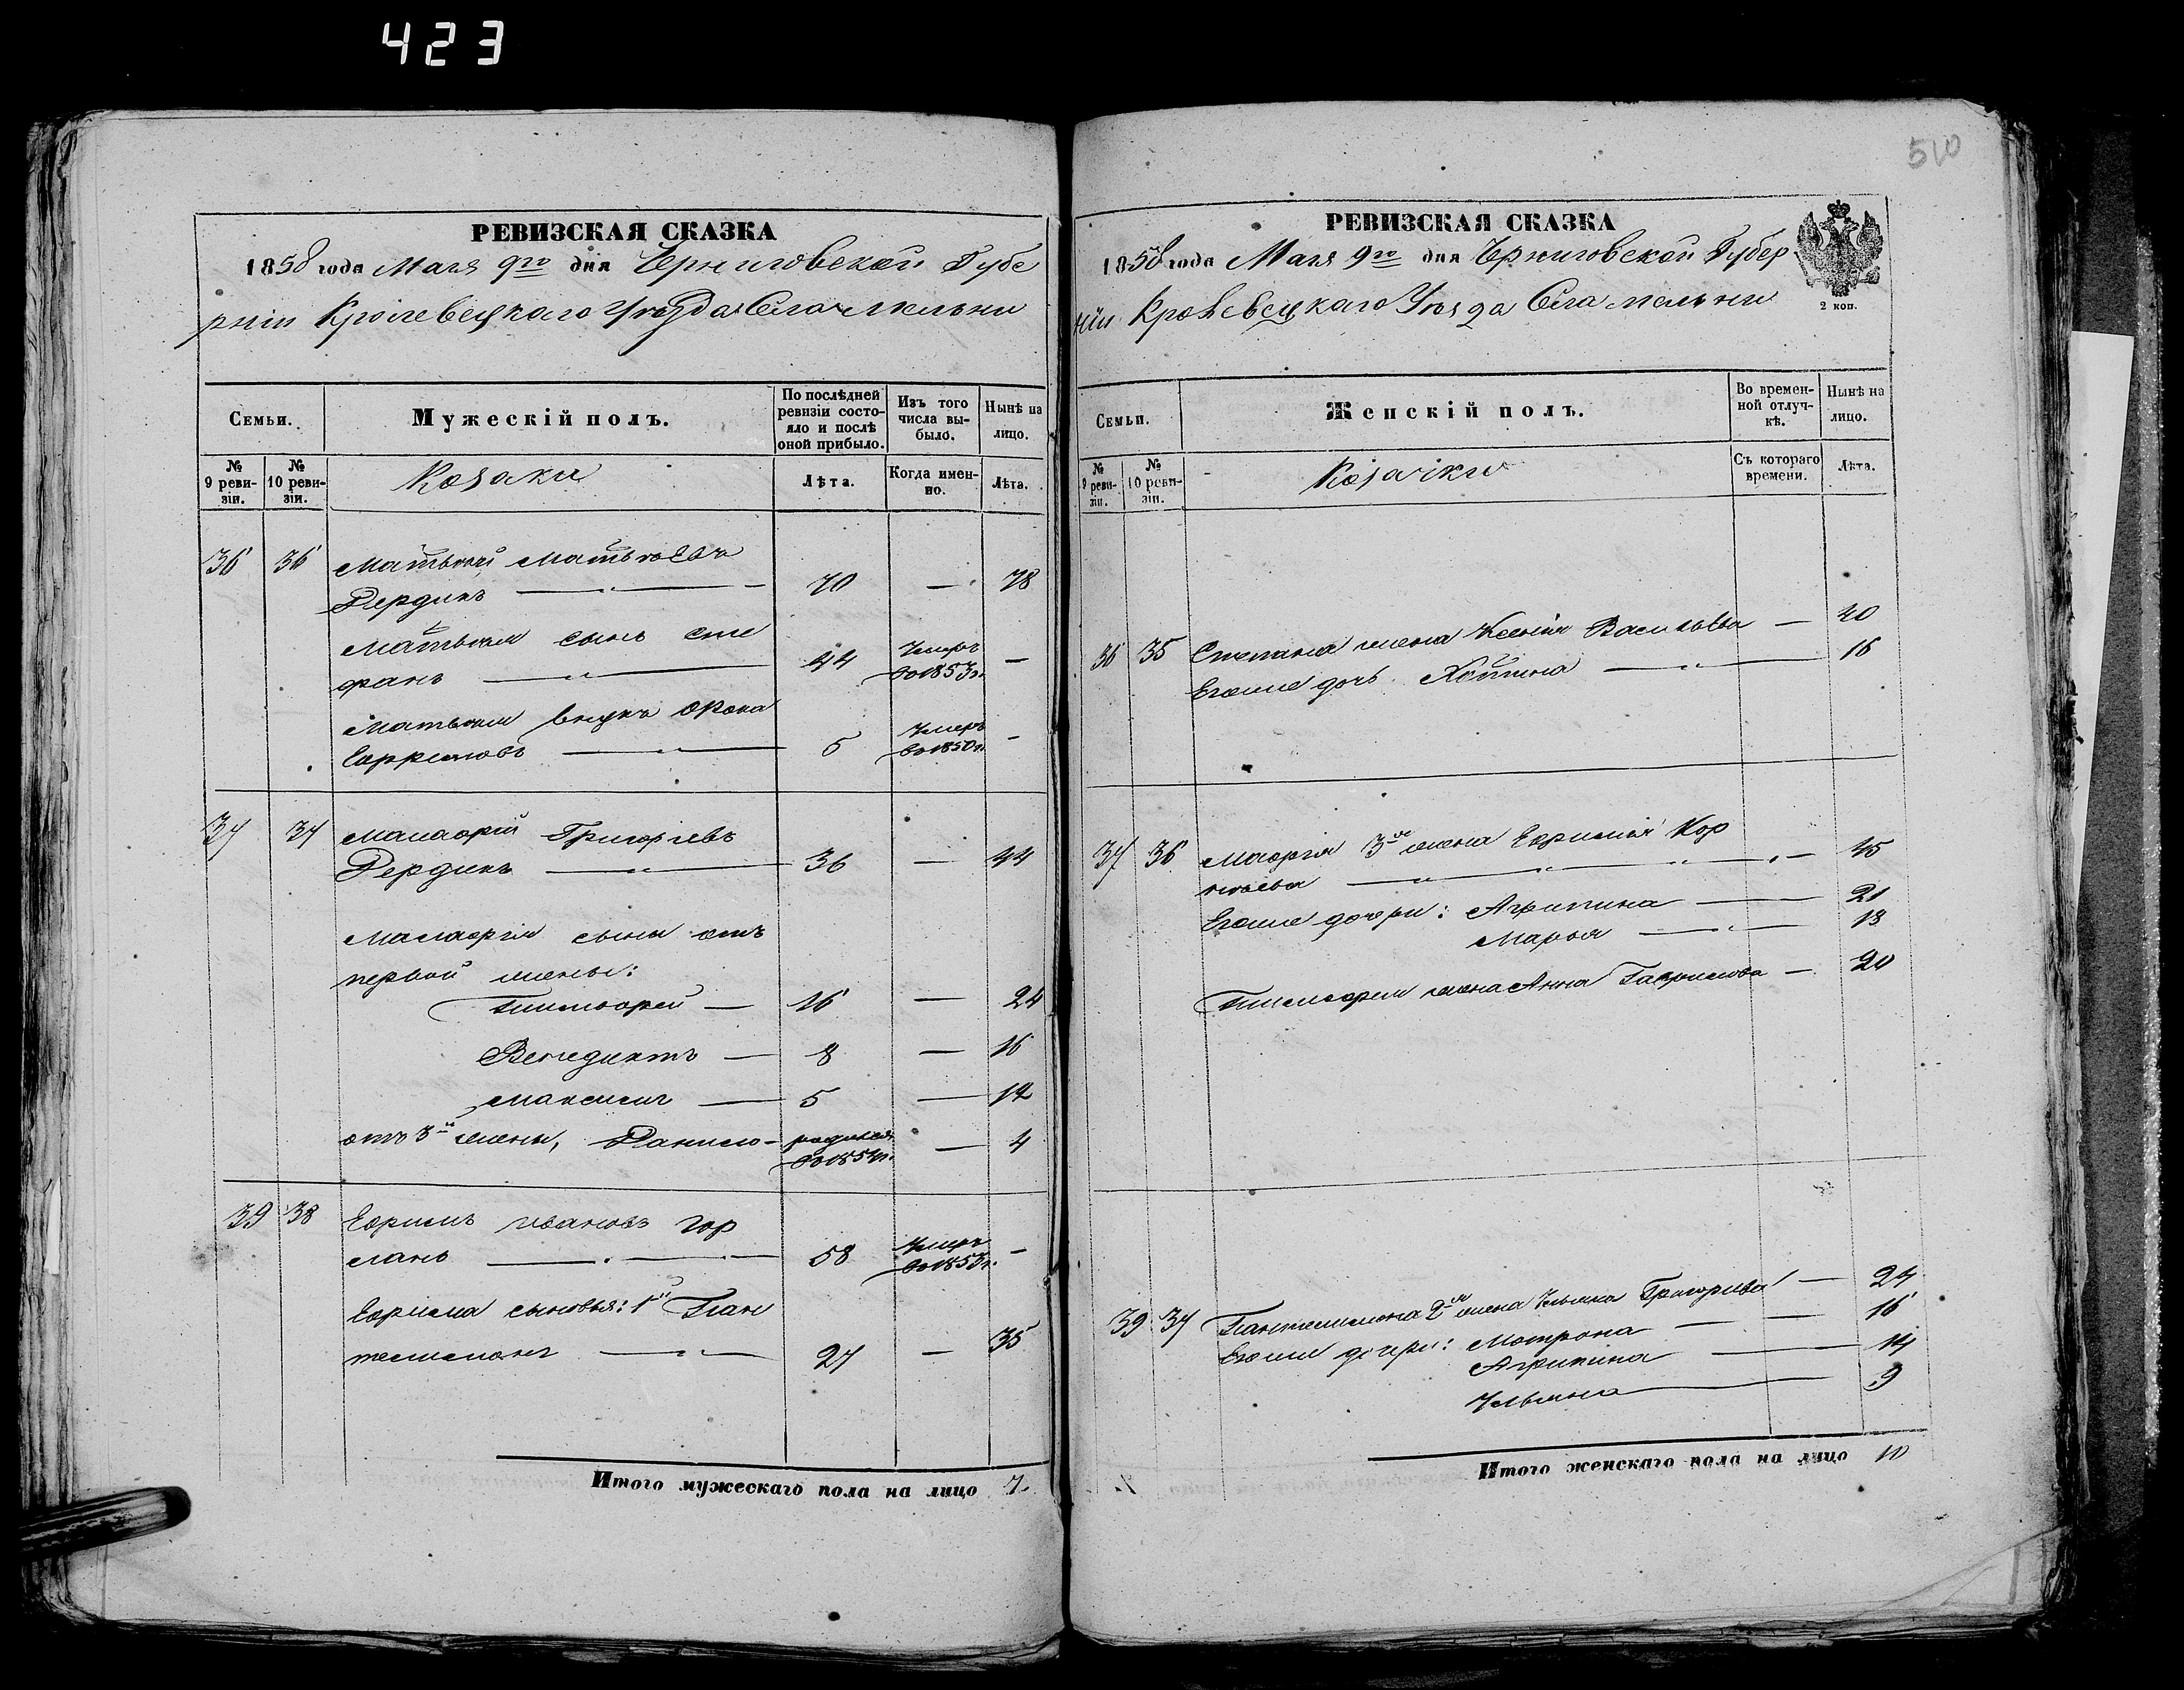 423
510
РЕВИЗСКАЯ СКАЗКА
1858 года Мая 9го дня Черниговской Губе
рніи Кролевецкаго Уѣзда Села Мельни
Семьи.
Мужескій полъ.
По послѣдней ревизіи состояло и послѣ оной прибыло.
Изъ того числа выбыло.
Нынѣ на лицо.
№ 9 ревизіи.
№ 10 ревизіи.
Козаки
Лѣта.
Когда именно.
Лѣта.
36 36 Матвѣй Матвѣевъ
Дердинъ — 70 — 78
Матвѣя сынъ Сте
фанъ — 44 Умеръ въ 1853 г. —
Матвѣя внукъ Фома
Ефремовъ — 5 Умеръ въ 1850 г. —
37 37 Григоріевъ
Дердинъ — 36 — 44
сыны отъ
первой жены:
Тимофей — 16 — 24
Венедиктъ — 8 — 16
Максимъ — 5 — 12
отъ 3й жены, Данило — родился въ 1854 г. — 4
39 38 Ефимъ Ивановъ Гор
ланъ — 58 Умеръ въ 1853 г. —
Ефима сыновья: 1й Пан
телимонъ — 27 — 35
Итого мужескаго пола на лицо 7.
РЕВИЗСКАЯ СКАЗКА
1858 года Мая 9го дня Черниговской Губер
ніи Кролевецкаго Уѣзда Села Мельни
2 коп.
Семьи.
Женскій полъ.
Во временной отлучкѣ.
Нынѣ на лицо.
№ 9 ревизіи.
№ 10 ревизіи.
Козачки
Съ котораго времени.
Лѣта.
36 35 Степана жена Ксенія Васильева — 40
Егоже дочь — 16
37 36 3я жена Ефимія Кор
нѣева — 45
Егоже дочери: Агрипина — 21
Марья — 18
Тимофея жена Анна Гаврилова — 20
39 37 Пантелимона 2я жена Ульяна Григорьева — 27
Егоже дочери: Мотрона — 16
Агрипина — 14
Ульяна — 9
Итого женскаго пола на лицо 10